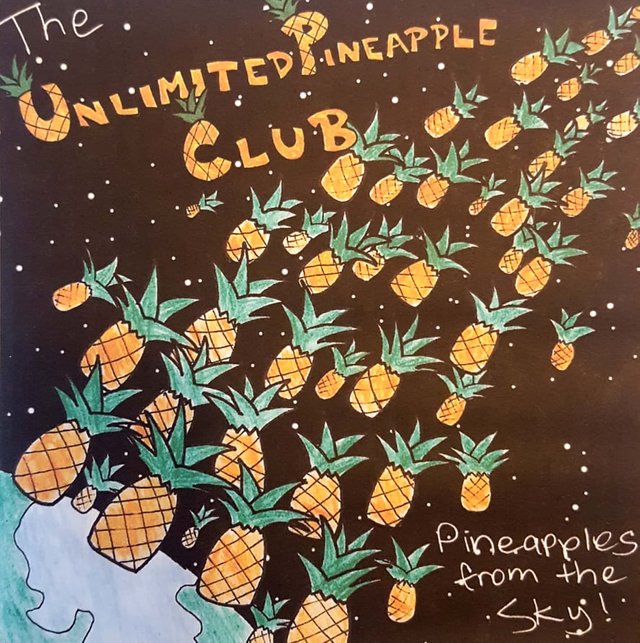 The
UNLIMITED PINEAPPLE
CLUB
Pineapples
from the
Sky!